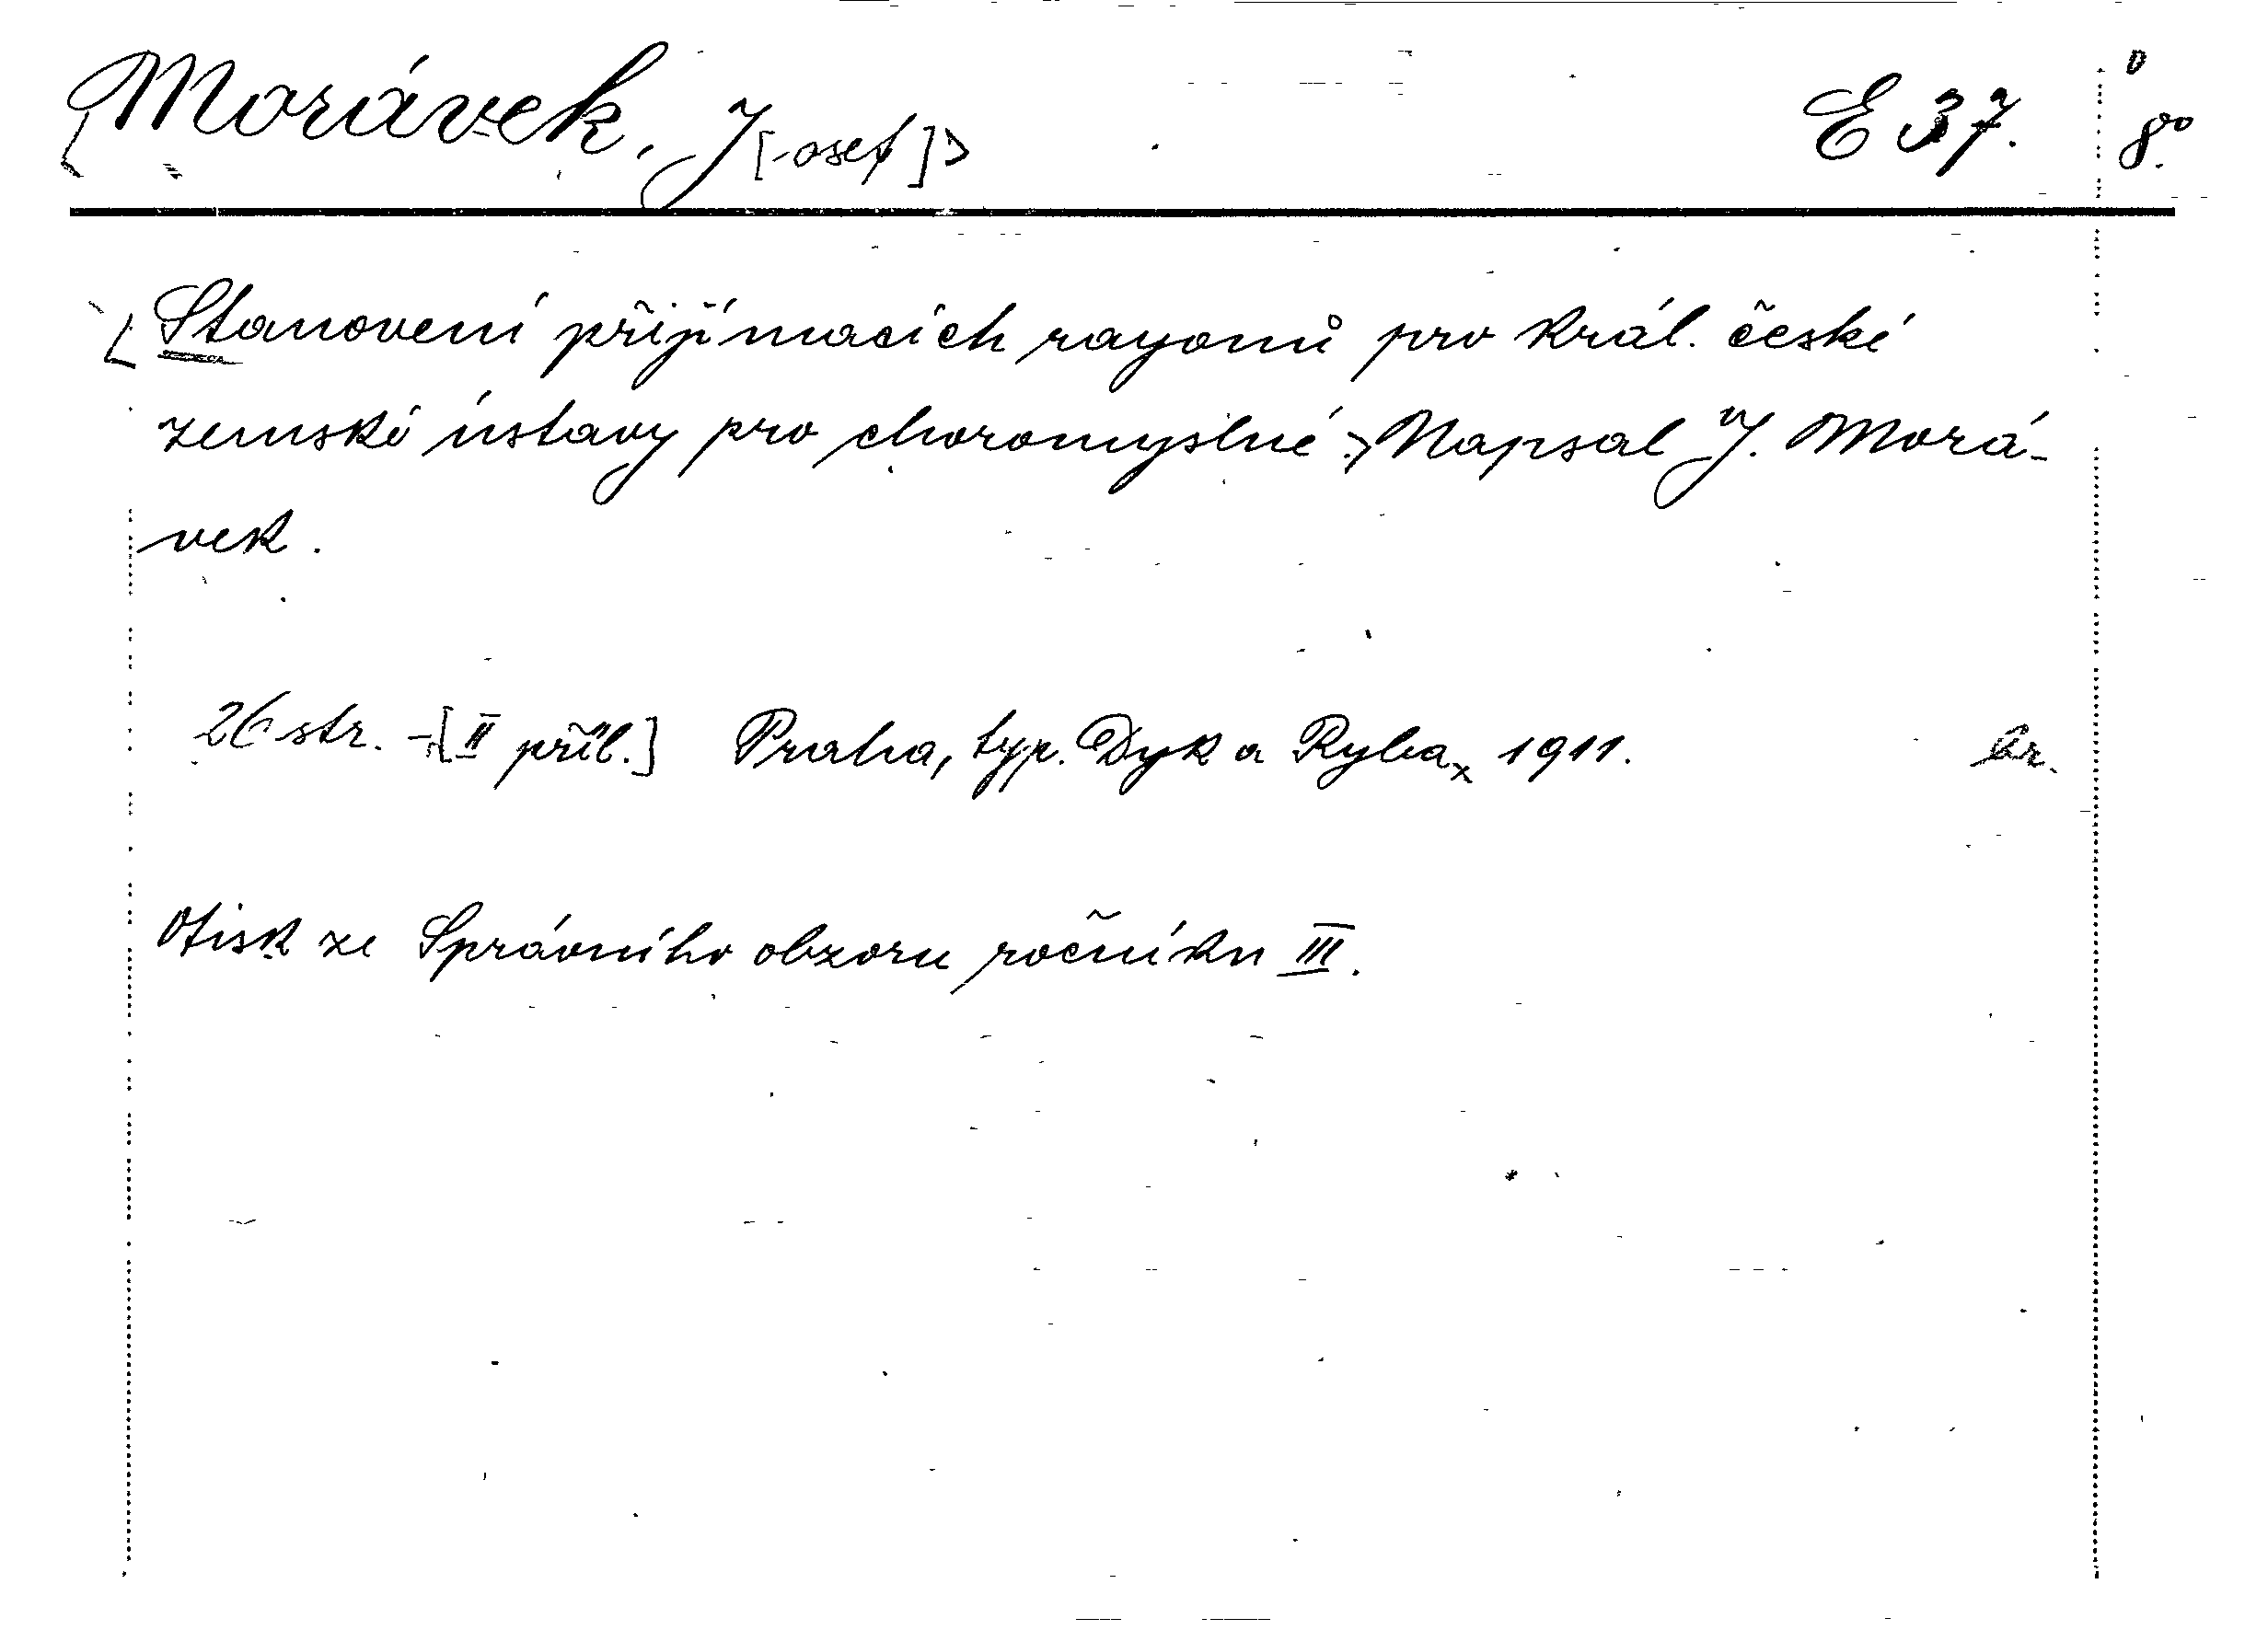 Morávek, J[-osef] E 37. 8°
Stanovení přijímacích rayonů pro král. české
zemské ústavy pro choromyslné. Napsal J. Morá-
vek.
26 str. -[II příl.] Praha, typ. Dyk a Ryba, 1911. br.
Otisk ze Správního obzoru ročníku III.